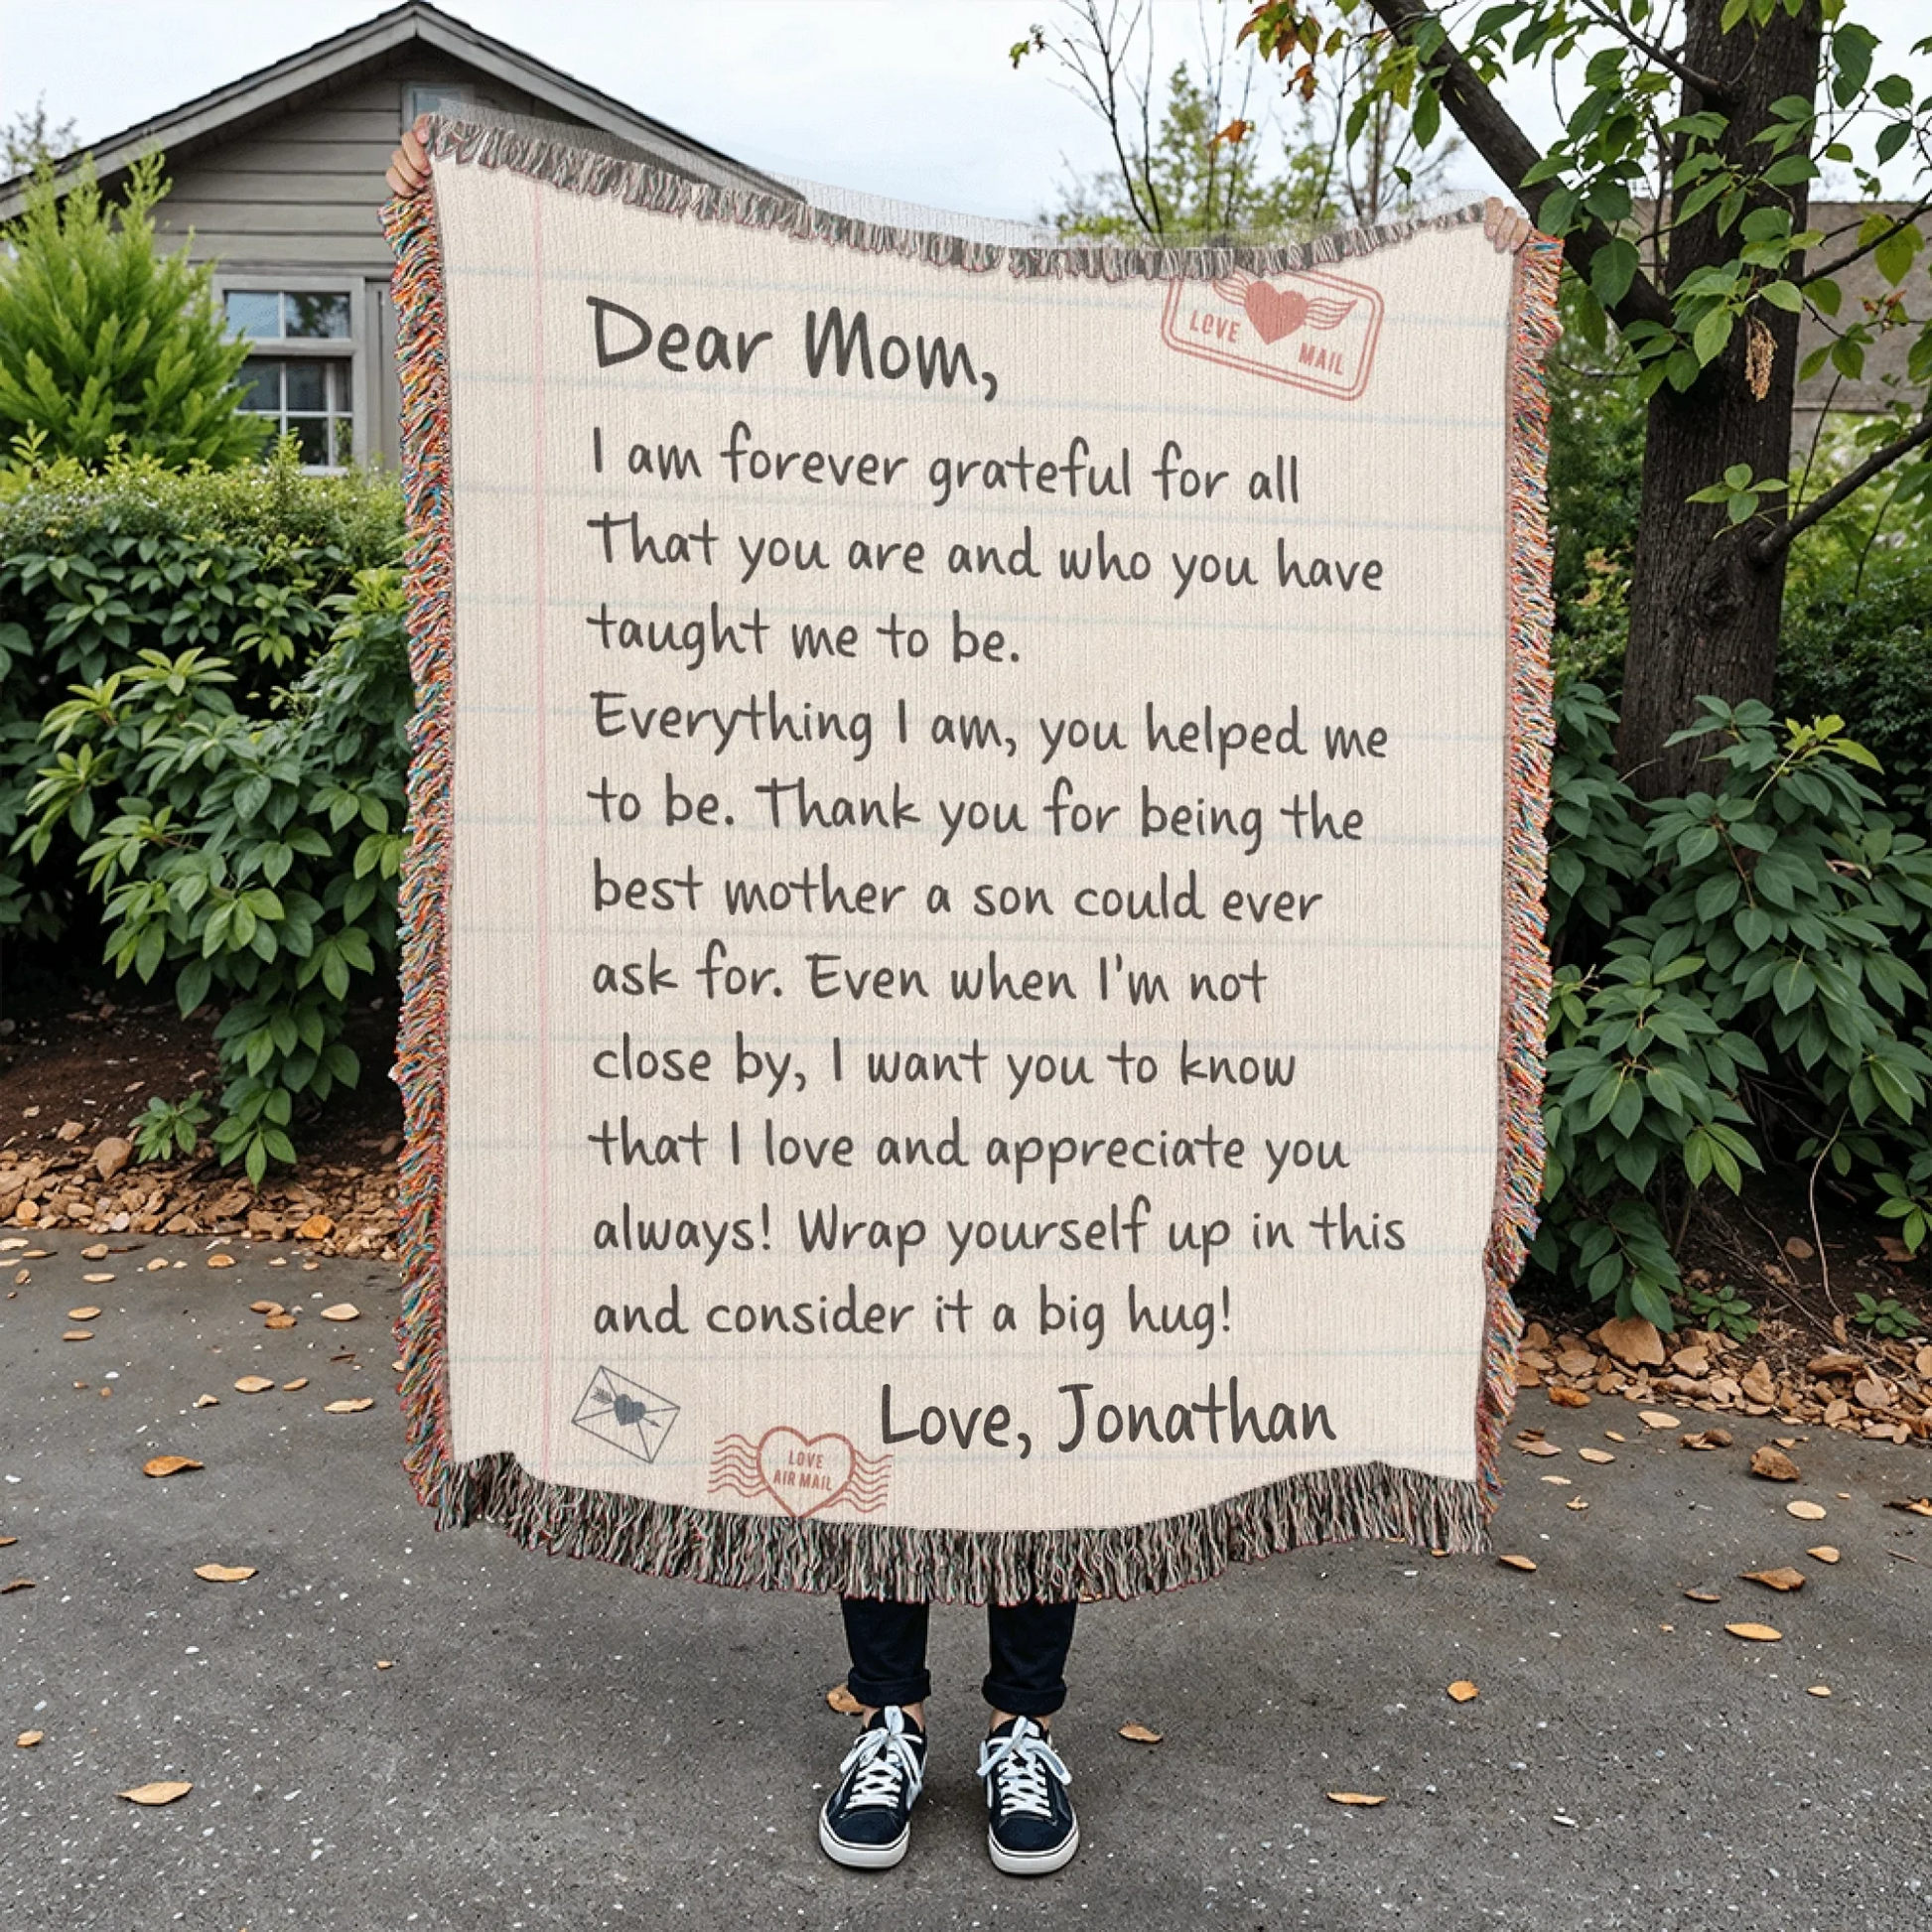 Dear Mom,
LOVE MAIL
I am forever grateful for all
That you are and who you have
taught me to be.
Everything I am, you helped me
to be. Thank you for being the
best mother a son could ever
ask for. Even when I'm not
close by, I want you to know
that I love and appreciate you
always! Wrap yourself up in this
and consider it a big hug!
Love, Jonathan
LOVE
AIR MAIL